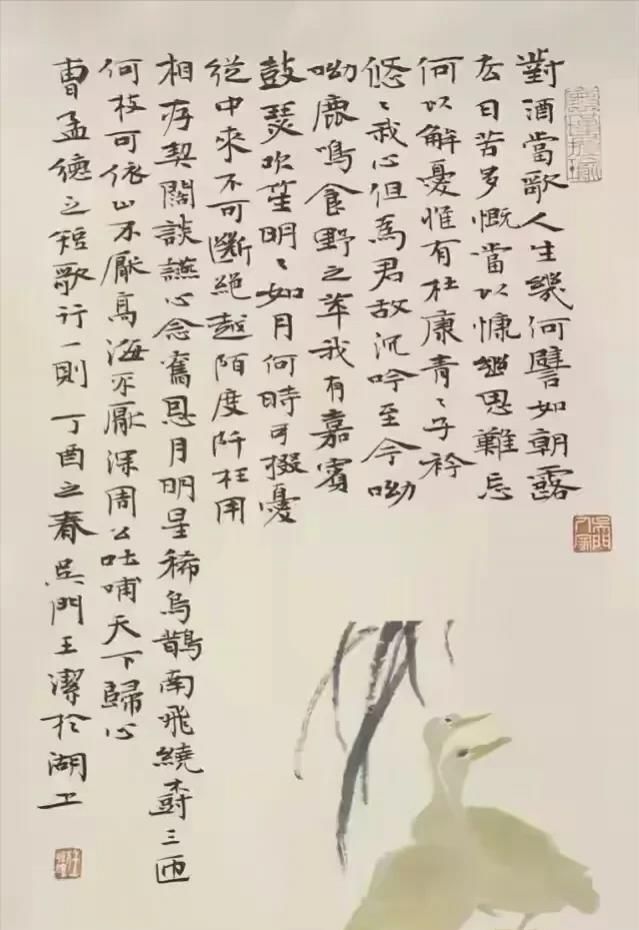 對酒當歌人生幾何譬如朝露
去日苦多慨當以慷幽思難忘
何以解憂惟有杜康青〻子衿
悠〻我心但爲君故沉吟至今呦
呦鹿鳴食野之苹我有嘉賓
鼓瑟吹笙明〻如月何時可掇憂
從中來不可斷絕越陌度阡枉用
相存契闊談讌心念舊恩月明星稀烏鵲南飛繞樹三匝
何枝可依山不厭高海不厭深周公吐哺天下歸心
曹孟德之短歌行一則丁酉之春吳門王潔於湖上